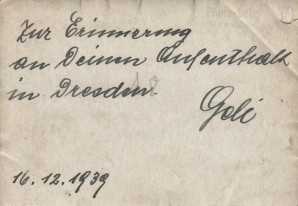 Zur Erinnerung
an Deinen Aufenthalt
in Dresden.
Goli
16.12.1939